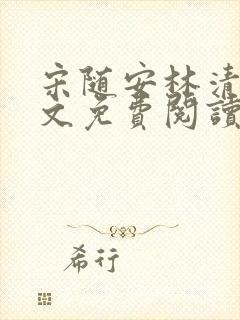 宋随安林清
文免費閱讀
希行